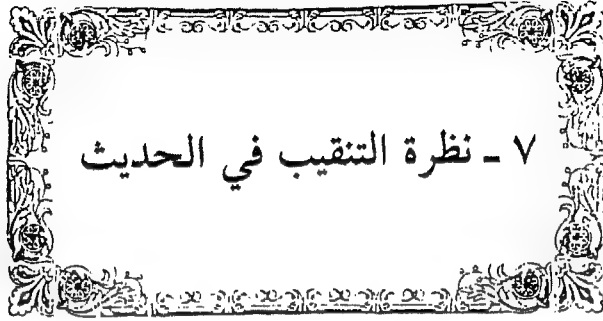 ٧ ـ نظرة التنقيب في الحديث